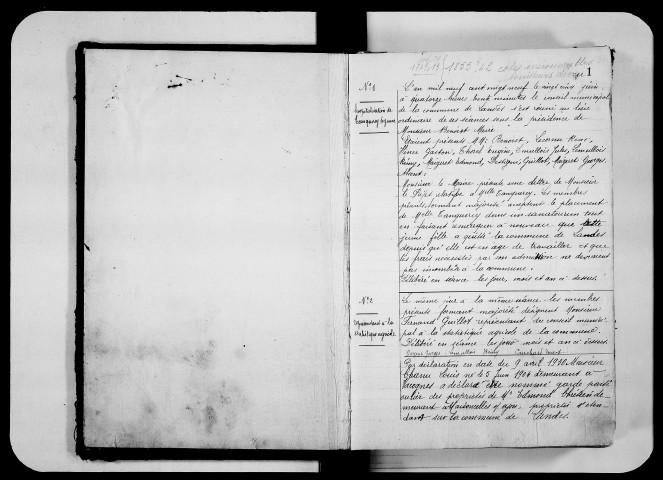 1
N° 1
L'an mil neuf cent vingt neuf le vingt cinq juin
à quatorze heures trente minutes le conseil municipal
de la commune de Landes s'est réuni au lieu
ordinaire de ses séances sous la présidence de
Monsieur Benoist Maire
Etaient présents MM. Benoist, Lecornu René,
Gaston, Thorel Eugène, Emullois Jules,
Rémy, Maizeret Edmond, Guillot, Maizeret Georges.
Absent:
Monsieur le Maire présente une lettre de Monsieur
le Préfet relative à Melle Tanguerey. Les membres
présents, formant majorité acceptent le placement
de Melle Tanguerey dans un sanatorium tout
en faisant remarquer à nouveau que cette
jeune fille a quitté la commune de Landes
depuis qu'elle est en age de travailler et que
les frais necessités par son admission ne devraient
pas incomber à la commune.
Délibéré en séance les jour, mois et an ci dessus.
N° 2
Le même jour à la même séance les membres
présents formant majorité désignent Monsieur
Fernand Guillot représentant du conseil munici-
pal à la statistique agricole de la commune.
Délibéré en séance les jour mois et an ci dessus.
Représentant à la
statistique agricole
Par déclaration en date du 9 avril 1930 Monsieur
Louis né le 5 juin 1904 demeurant à
a déclaré être nommé garde parti
culier des propriétés de Mr Edmond Chrétien de-
meurant à Maisoncelles s/ Ajon, propriétés s'éten-
dant sur la commune de Landes.